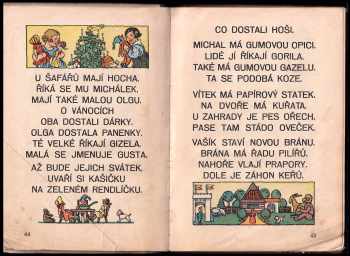 U ŠAFÁŘŮ MAJÍ HOCHA.
ŘÍKÁ SE MU MICHÁLEK.
MAJÍ TAKÉ MALOU OLGU.
O VÁNOCÍCH
OBA DOSTALI DÁRKY.
OLGA DOSTALA PANENKY.
TÉ VELKÉ ŘÍKAJÍ GIZELA.
MALÁ SE JMENUJE GUSTA.
AŽ BUDE JEJICH SVÁTEK,
UVAŘÍ SI KAŠIČKU
NA ZELENÉM RENDLÍČKU.
44
CO DOSTALI HOŠI.
MICHAL MÁ GUMOVOU OPICI.
LIDÉ JÍ ŘÍKAJÍ GORILA.
TAKÉ MÁ GUMOVOU GAZELU.
TA SE PODOBÁ KOZE.
VÍTEK MÁ PAPÍROVÝ STATEK.
NA DVOŘE MÁ KUŘATA.
U ZAHRADY JE PES OŘECH.
PASE TAM STÁDO OVEČEK.
VAŠÍK STAVÍ NOVOU BRÁNU.
BRÁNA MÁ ŘADU PILÍŘŮ.
NAHOŘE VLAJÍ PRAPORY.
DOLE JE ZÁHON KEŘŮ.
45